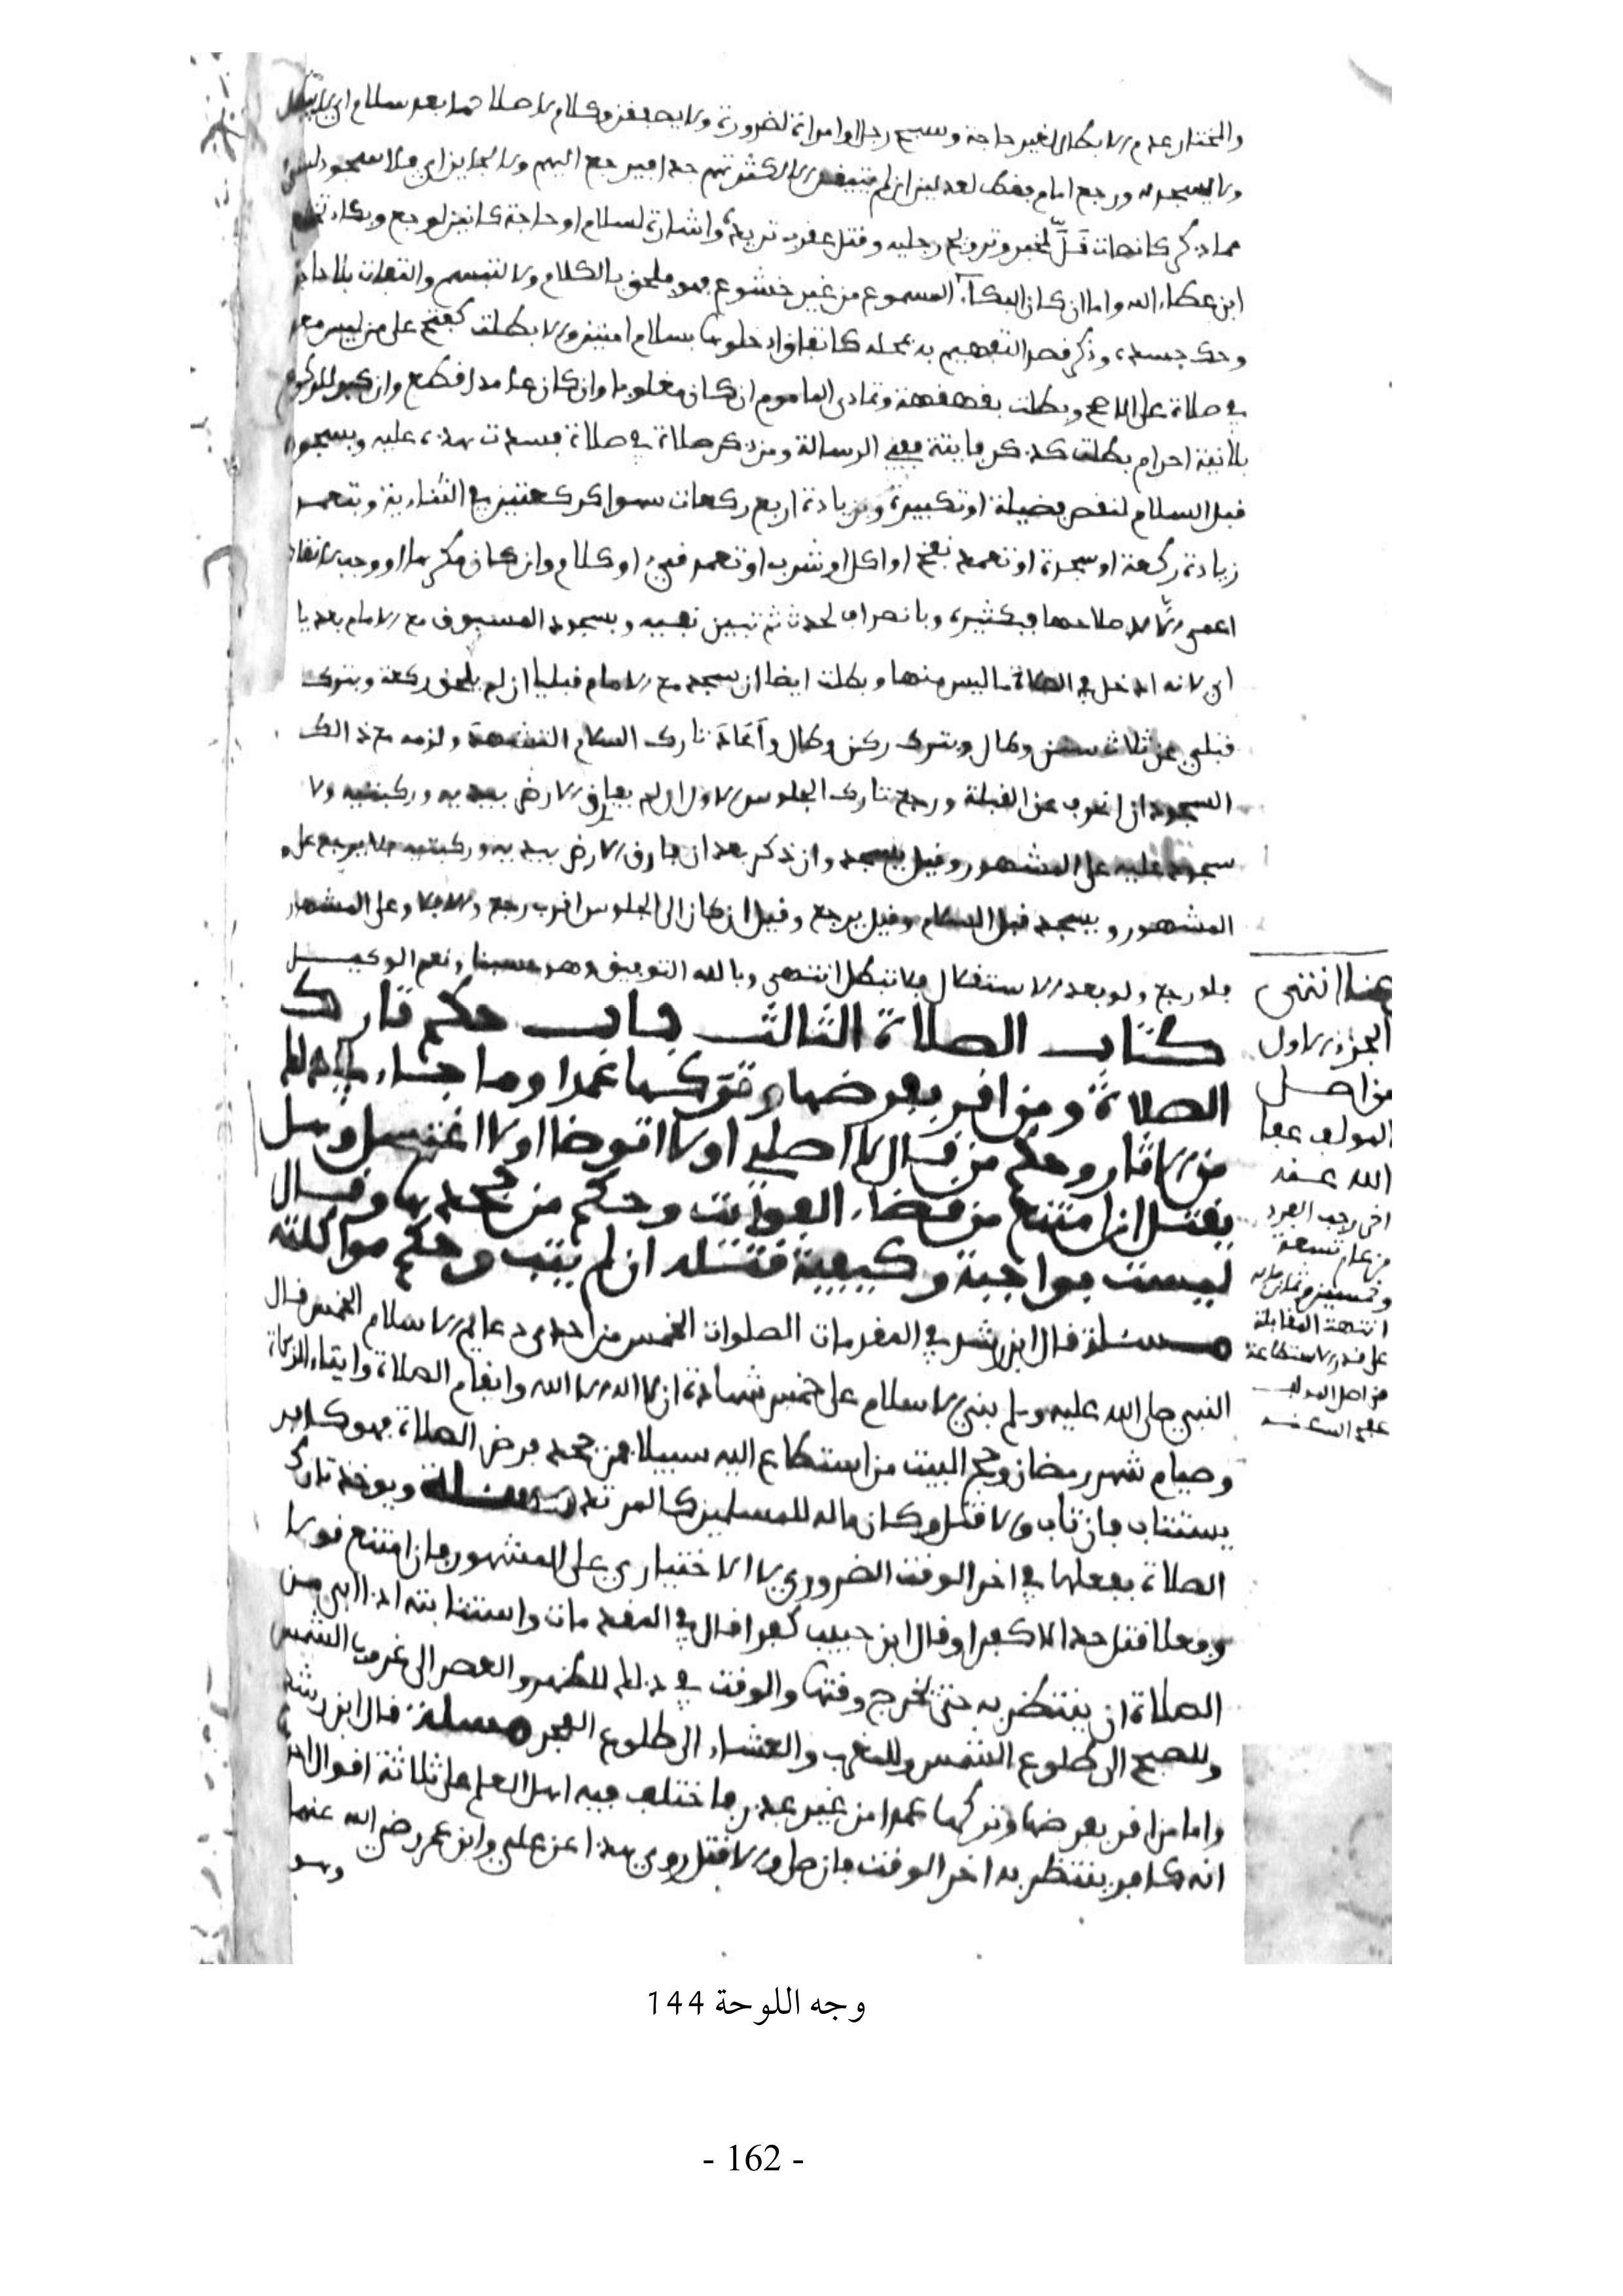 والمختار عدم الابطال لغير حاجة وسبح رجل او امراة لضرورة ولا يصفقن وكلام لاصلاحها بعد سلام اي لا يبطل
ولا يسجد له ورجع امام فقط لعدلين ان لم يتيقن الا لكثرتهم جدا فيرجع اليهم ولا لجايز اي فلا سجود
مما ذكر كانصات قل لمخبر وترويح رجليه وقتل عقرب تريده واشارة لسلام او حاجة كانين لوجع وبكاء تخشع
ابن عطاء الله واما ان كان البكاء المسموع من غير خشوع فهو ملحق بالكلام ولا لتبسم والتفات بلا حاجة
وحك جسده وذكر قصد التفهيم به بمحله كاتفاق ادخلوها بسلام امنين والا بطلت كفتح على من ليس معه
في صلاة على الاصح وبطلت بقهقهة وتمادى الماموم ان كان مغلوبا وان كان عامدا قطع وان كبر للركوع
بلا نية احرام بطلت كذكر فايتة ففي الرسالة ومن ذكر صلاة في صلاة فسدت هذه عليه وبسجود
قبل السلام لنقص فضيلة او تكبيرة وبزيادة اربع ركعات سهوا كركعتين في الثنائية وبتعمد
زيادة ركعة او سجدة او تعمد نفخ او اكل او شرب او تعمد قيء او كلام وان كان مكرها او وجب لانقاذ
اعمى الا لاصلاحها فبكثيره وبانصراف لحدث ثم تبين نفيه وبسجود المسبوق مع الامام بعديا
اي لانه ادخل في الصلاة ما ليس منها وبطلت ايضا ان سجد مع الامام قبليا ان لم يلحق ركعة وبترك
قبلي عن ثلاث سنن وطال وبترك ركن وطال واعاد تارك السلام التشهد ولزمه مع ذالك
السجود ان انحرف عن القبلة ورجع تارك الجلوس الاول ان لم يفارق الارض بيديه وركبتيه ولا
سجود عليه على المشهور وقيل يسجد وان ذكر بعد ان فارق الارض بيديه وركبتيه فلا يرجع على
المشهور ويسجد قبل السلام وقيل يرجع وقيل ان كان الى الجلوس اقرب رجع والا فلا وعلى المشهور
فلو رجع ولو بعد الاستقلال فلا تبطل انتهى وبالله التوفيق وهو حسبنا ونعم الوكيل
كتاب الصلاة الثالث باب حكم تارك
الصلاة ومن اقر بفرضها وتركها عمدا وما جاء في ذلك
من الاثار وحكم من قال لا اصلي او لا اتوضا او لا اغتسل وهل
يقتل ان امتنع من قضاء الفوايت وحكم من جحدها وقال
ليست بواجبة وكيفية قتله ان لم يتب وحكم مواكلته
مسئلة قال ابن رشد في المقدمات الصلوات الخمس من احدى دعايم الاسلام الخمس قال
النبي صلى الله عليه وسلم بني الاسلام على خمس شهادة ان لا اله الا الله واقام الصلاة وايتاء الزكاة
وصيام شهر رمضان وحج البيت من استطاع اليه سبيلا فمن جحد فرض الصلاة فهو كافر
يستتاب فان تاب والا قتل وكان ماله للمسلمين كالمرتد مسئلة ويوخذ تارك
الصلاة بفعلها في اخر الوقت الضروري لا الاختياري على المشهور فان امتنع قولا
وفعلا قتل حدا لا كفرا وقال ابن حبيب كفرا قال في المقدمات واستتابته اذا ابى من
الصلاة ان ينتظر به حتى يخرج وقتها والوقت في ذلك للظهر والعصر الى غروب الشمس
وللصبح الى طلوع الشمس وللمغرب والعشاء الى طلوع الفجر مسئلة قال ابن رشد
واما من اقر بفرضها وتركها عمدا من غير عذر فاختلف فيه اهل العلم على ثلاثة اقوال
انه كافر ينتظر به اخر الوقت فان صلى والا قتل روي هذا عن علي وابن عمر رضي الله عنهما
وهو
هنا انتهى
الجزء الاول
من اصل
المولف عفا
الله عنه
اخر رجب الفرد
من عام تسعة
وخمسين
انتهت المقابلة
على قدر الاستطاعة
من اصل المولف
عفى الله عنه
وجه اللوحة 144
- 162 -